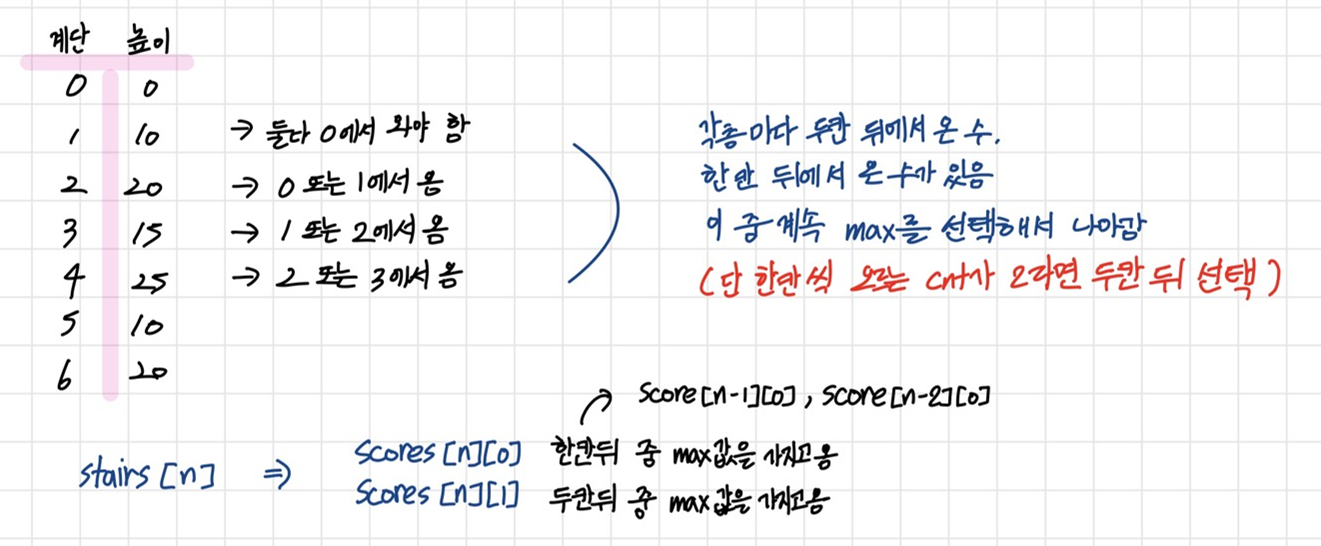 계단 높이
0 0
1 10 → 둘다 0에서 와야 함
2 20 → 0 또는 1에서 옴
3 15 → 1 또는 2에서 옴
4 25 → 2 또는 3에서 옴
5 10
6 20
각층마다 두칸 뒤에서 온 수,
한칸 뒤에서 온 수가 있음
이 중 계속 max를 선택해서 나아감
(단 한칸씩 오르는 cnt가 2라면 두칸 뒤 선택)
score[n-1][0], score[n-2][0]
stairs[n] ⇒ scores[n][0] 한칸뒤 중 max값을 가지고옴
scores[n][1] 두칸뒤 중 max값을 가지고옴